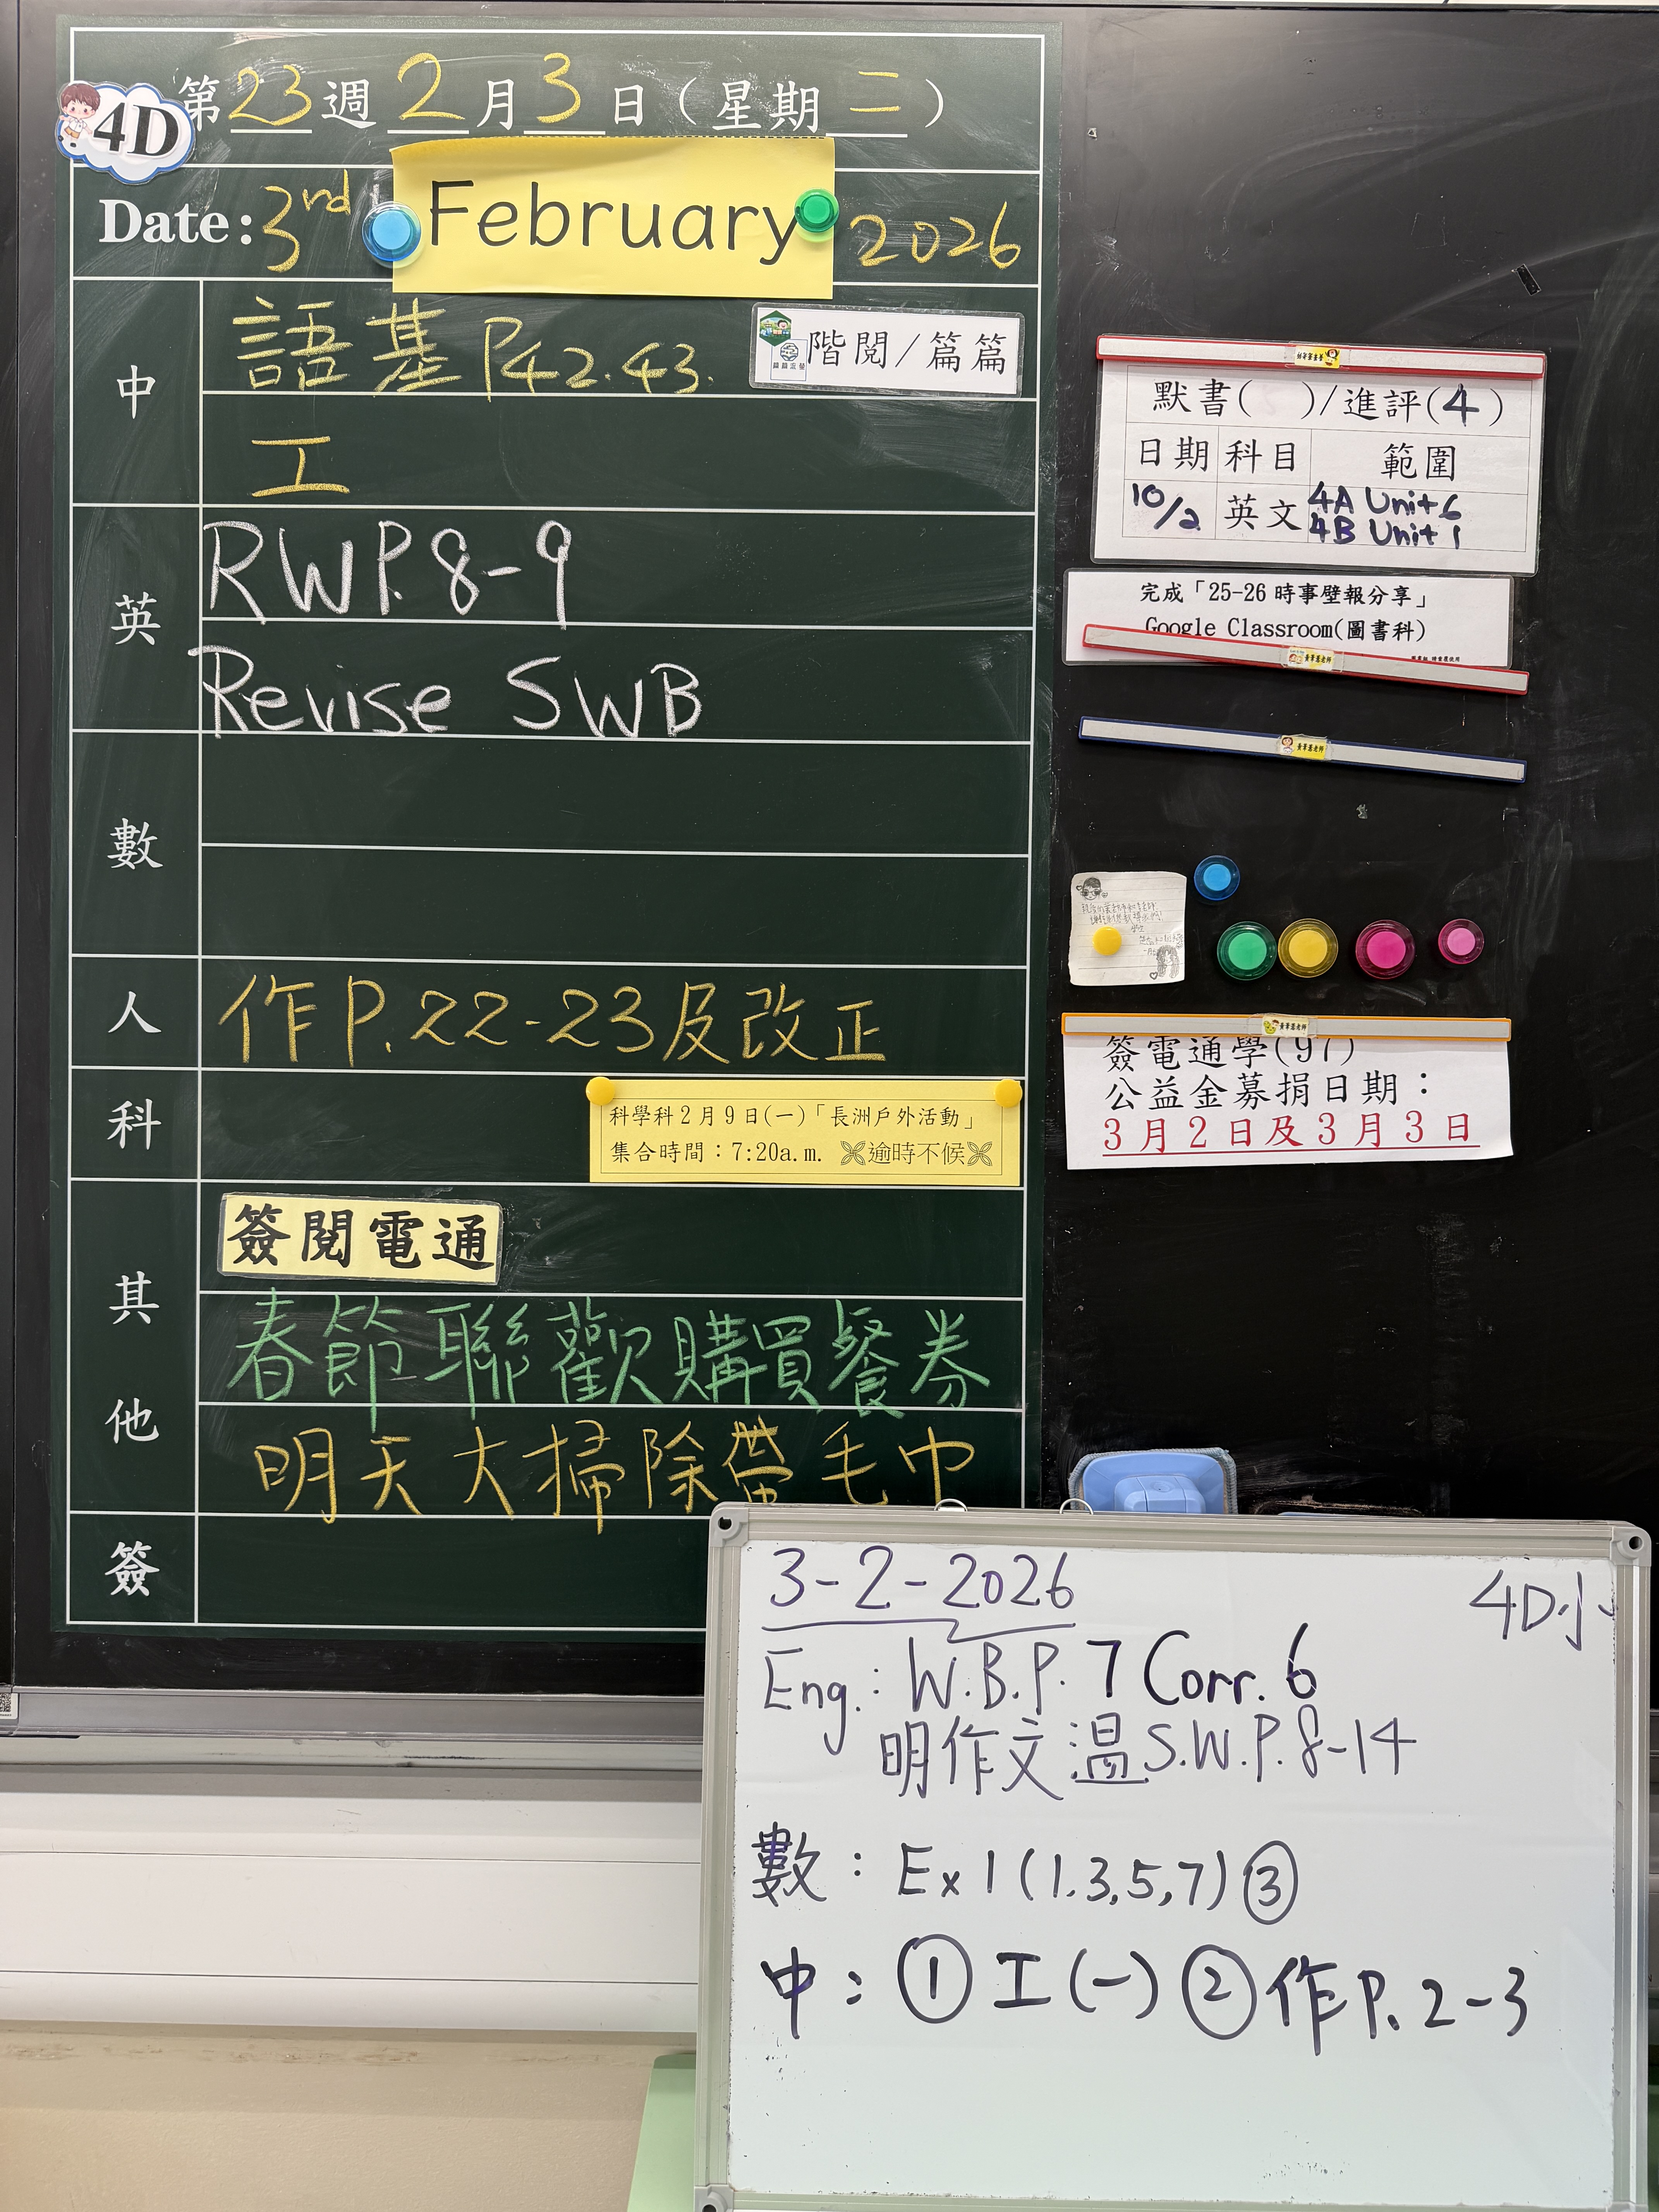 第23週2月3日(星期二)
4D
Date: 3rd February 2026
中
語基 P42.43.
階閱/篇篇
工
英
RWP.8-9
Revise SWB
數
人
作P.22-23及改正
科
科學科2月9日(一)「長洲戶外活動」
集合時間：7:20a.m. 逾時不候
其他
簽閱電通
春節聯歡購買餐券
明天大掃除帶毛巾
簽
默書( )/進評(4)
日期 科目 範圍
10/2 英文 4A Unit 6
4B Unit 1
完成「25-26 時事壁報分享」
Google Classroom(圖書科)
簽電通學(97)
公益金募捐日期：
3月2日及3月3日
3-2-2026
4D小
Eng.: W.B.P. 7 Corr. 6
明作文溫S.W.P.8-14
數：Ex 1 (1.3,5,7) ③
中：① 工(一) ② 作P. 2-3